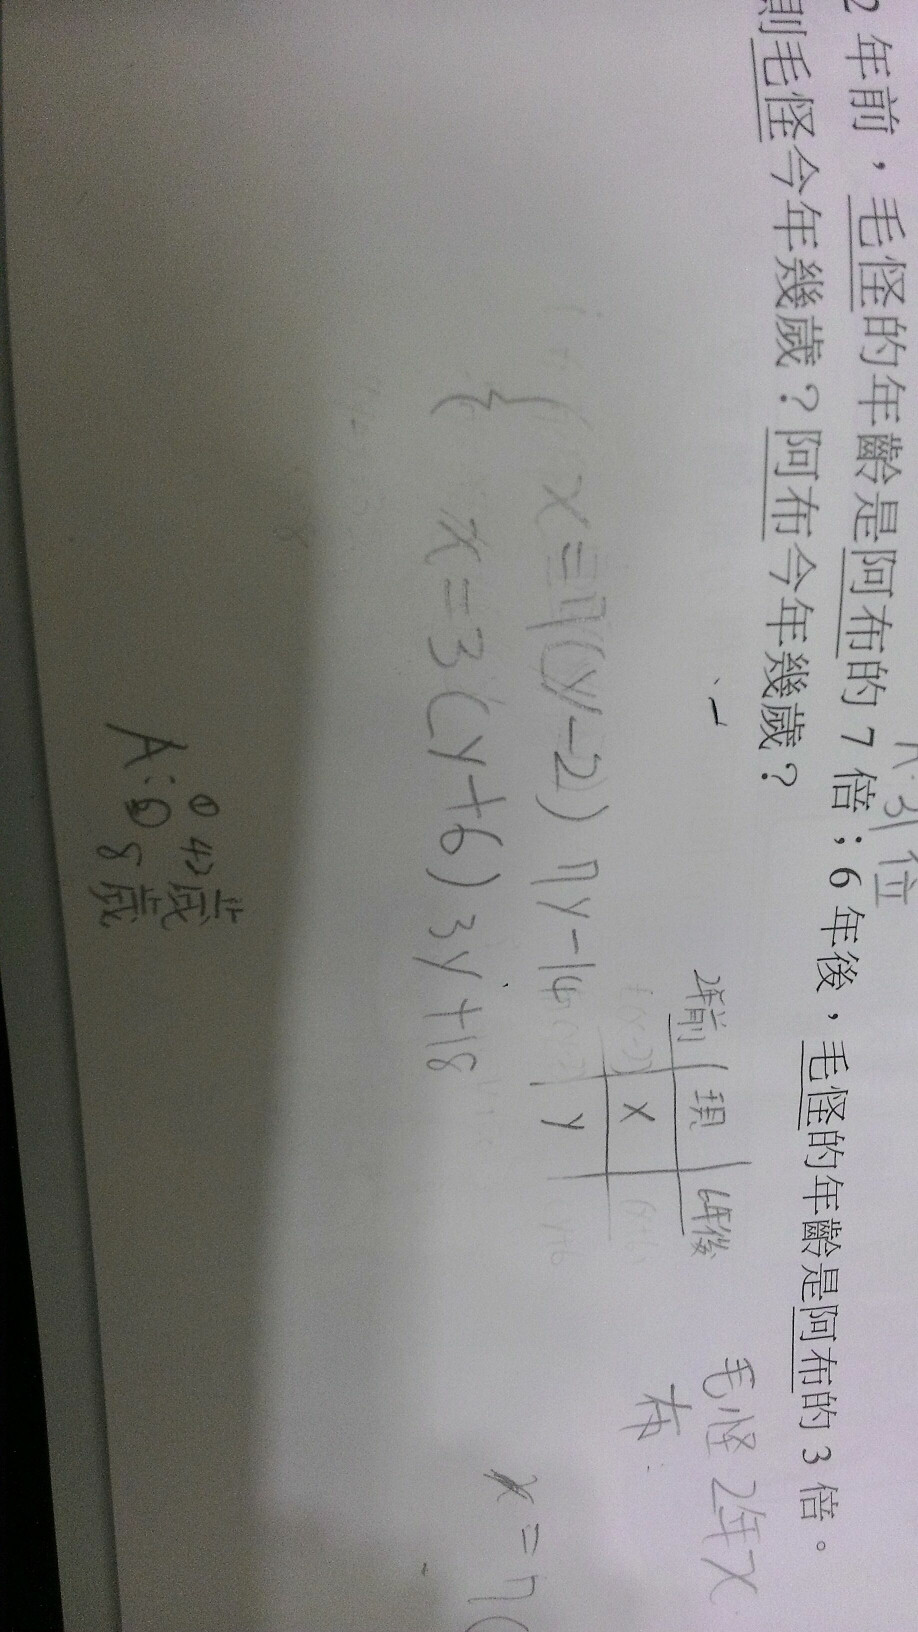 A:31位
2年前，毛怪的年齡是阿布的7倍；6年後，毛怪的年齡是阿布的3倍。
則毛怪今年幾歲？阿布今年幾歲？
毛怪 2年x
布:
2年前 現 6年後
x
y
x=7(y-2) 7y-14
x=3(y+6) 3y+18
x=7(
A: ① 42歲
② 8歲